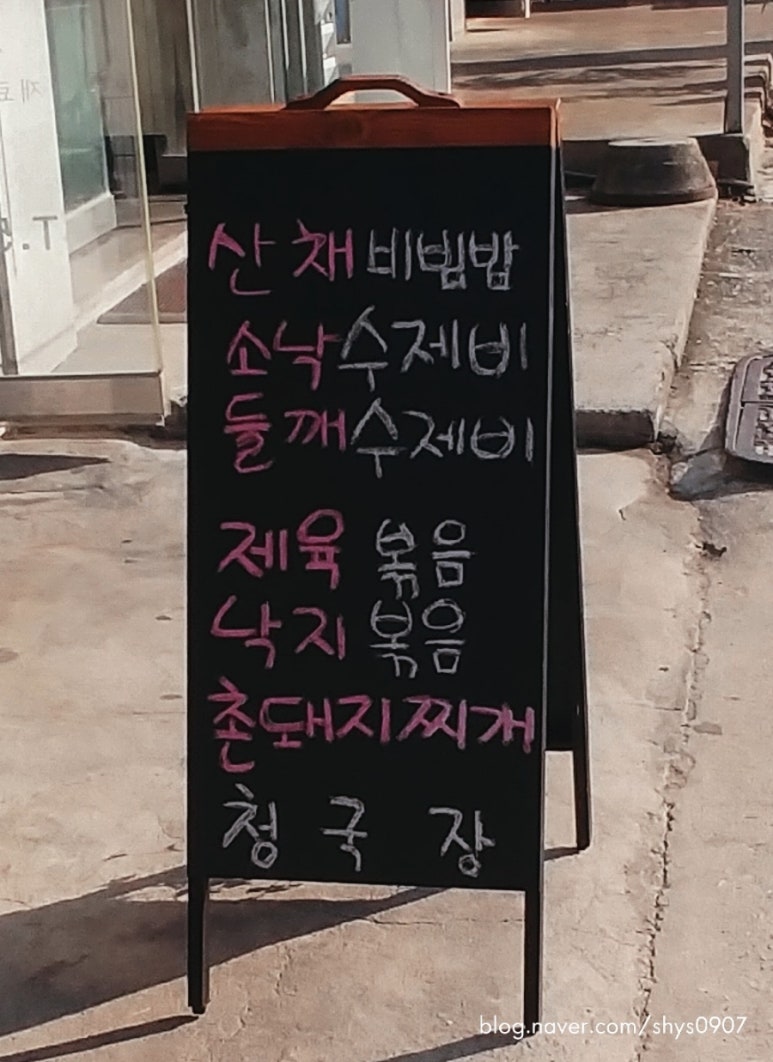 산채비빔밥
소낙수제비
들깨수제비
제육 볶음
낙지 볶음
촌돼지찌개
청국장
blog.naver.com/shys0907